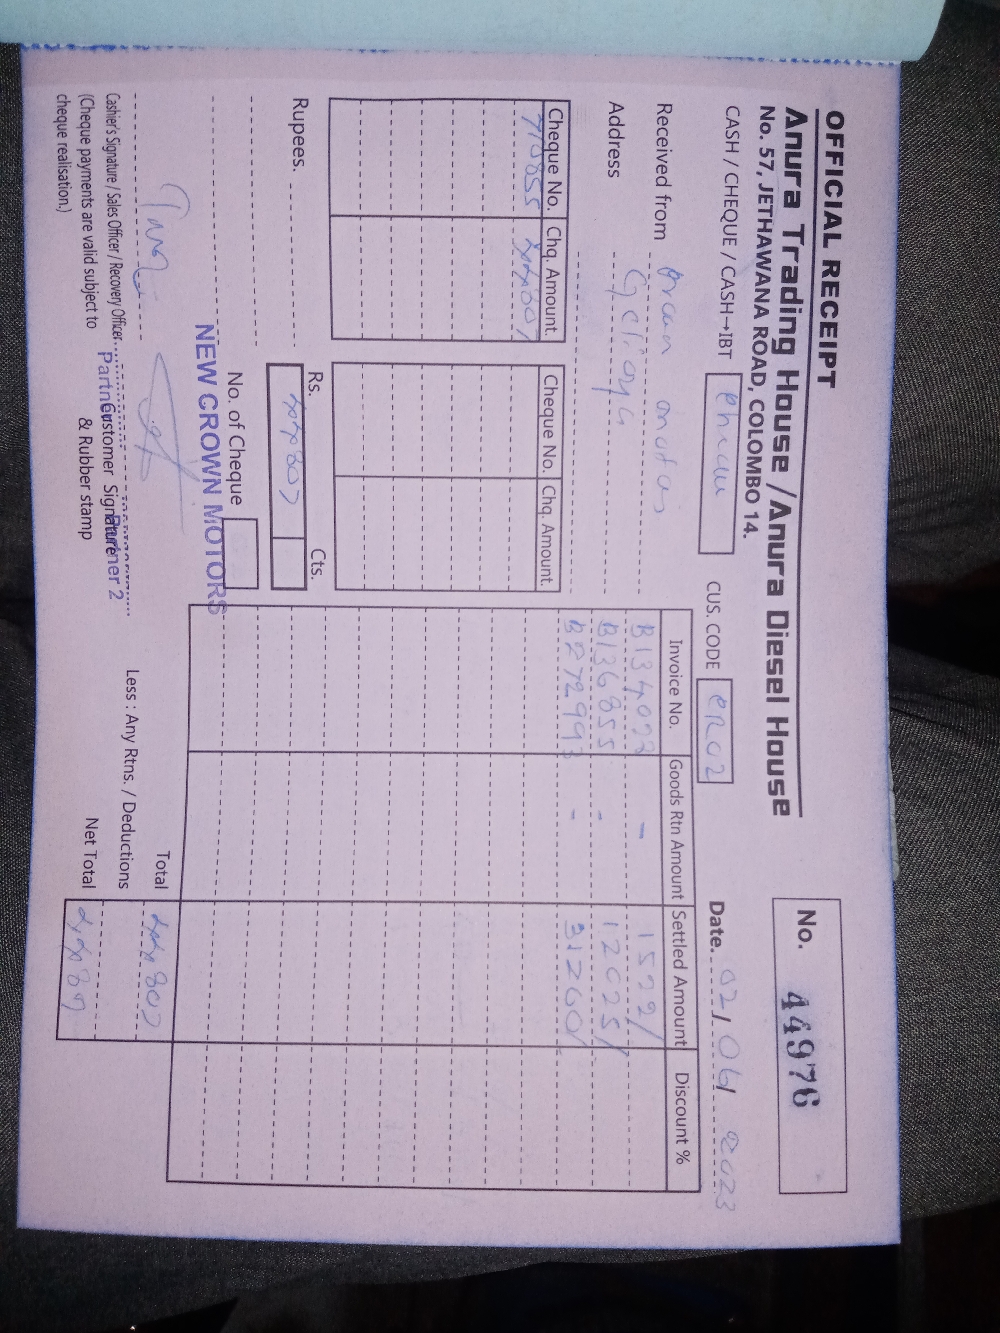 OFFICIAL RECEIPT
Anura Trading House / Anura Diesel House
No. 57, JETHAWANA ROAD, COLOMBO 14.
No. 44976
CASH / CHEQUE / CASH→IBT
CUS. CODE
Date. 02/06/2023
Received from
Address
Cheque No. Chq. Amount. Cheque No. Chq. Amount.
710855
Invoice No. Goods Rtn Amount Settled Amount Discount %
B134022 -
B136855 - 12025/
B272993 - 31260/
Rupees.
Rs. Cts.
No. of Cheque
NEW CROWN MOTORS
Total
Less : Any Rtns. / Deductions
Net Total
Cashier's Signature / Sales Officer / Recovery Officer
(Cheque payments are valid subject to
cheque realisation.)
Partner Partner 2
Customer Signature
& Rubber stamp